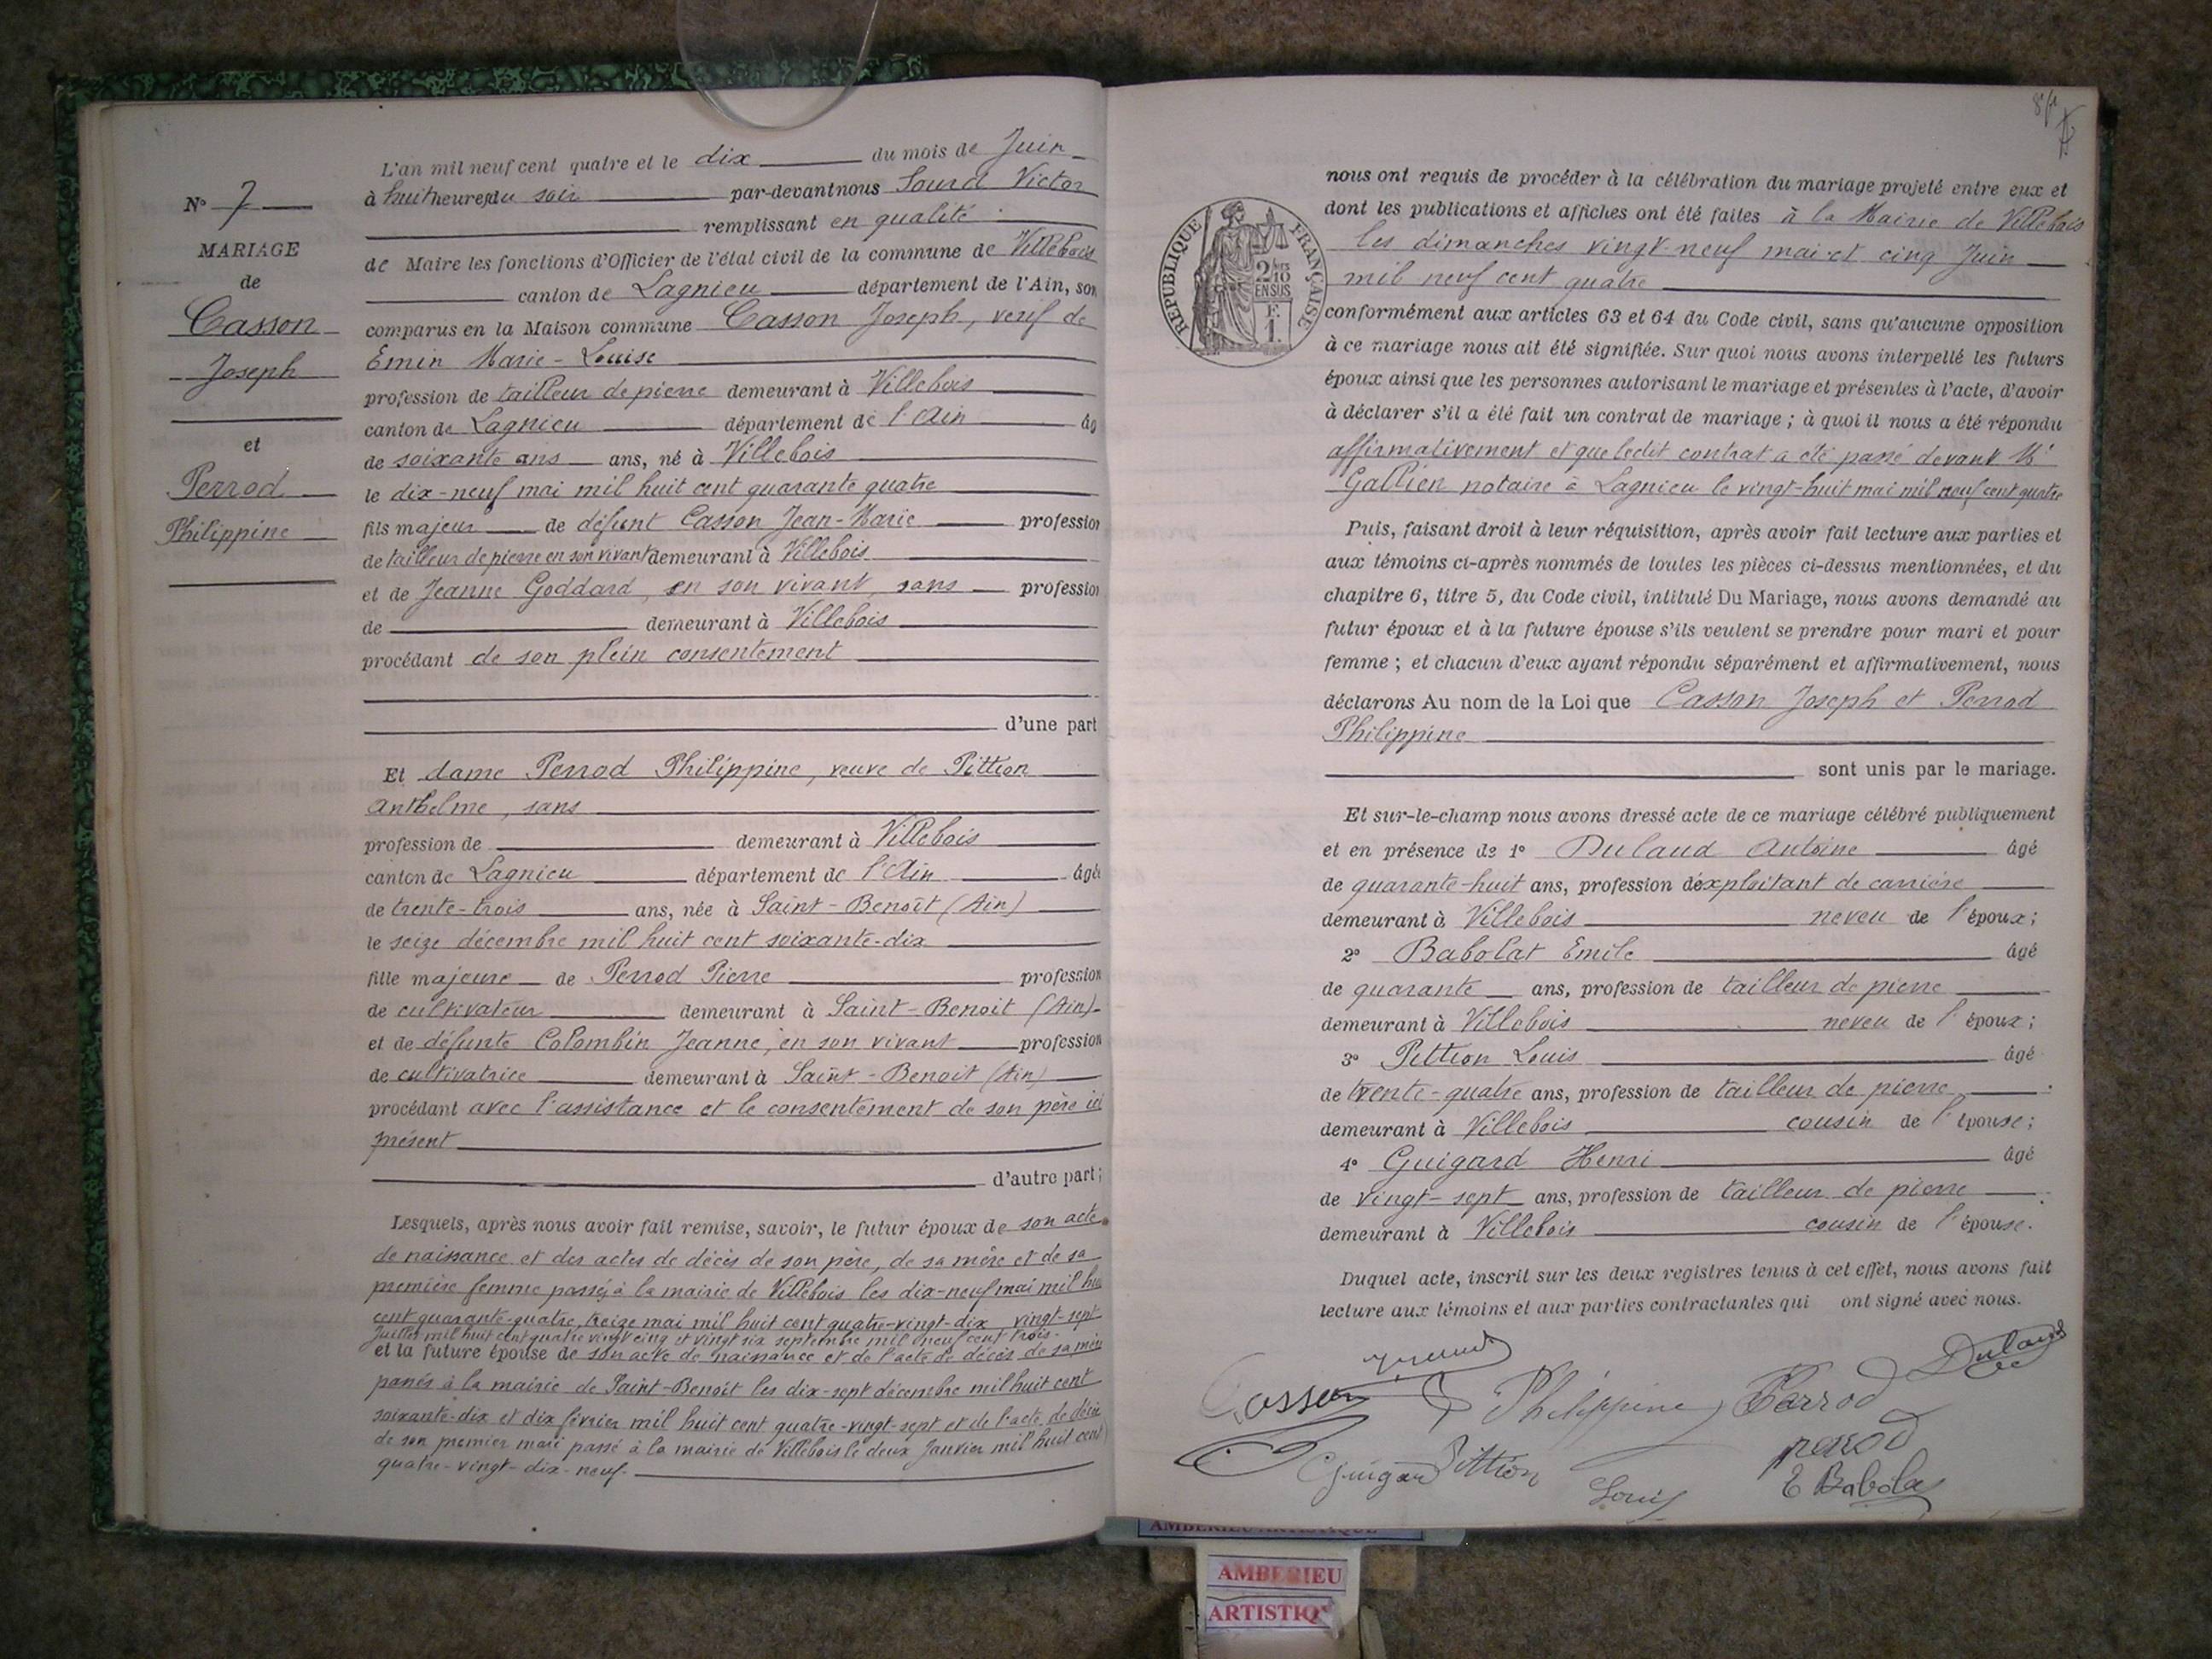 N° 7
MARIAGE
de
Casson
Joseph
et
Perrod
Philippine
L'an mil neuf cent quatre et le dix du mois de Juin
à huit heures du soir par-devant nous Sourd Victor
remplissant en qualité
de Maire les fonctions d'Officier de l'état civil de la commune de Villebois
canton de Lagnieu département de l'Ain, son
comparus en la Maison commune Casson Joseph, veuf de
Emin Marie-Louise
profession de tailleur de pierre demeurant à Villebois
canton de Lagnieu département de l'Ain âg
de soixante ans ans, né à Villebois
le dix-neuf mai mil huit cent quarante quatre
fils majeur de défunt Casson Jean-Marie profession
de tailleur de pierre en son vivant demeurant à Villebois
et de Jeanne Goddard, en son vivant, sans profession
de demeurant à Villebois
procédant de son plein consentement
d'une part
Et dame Perrod Philippine, veuve de Pittion
Anthelme, sans
profession de demeurant à Villebois
canton de Lagnieu département de l'Ain âgée
de trente-trois ans, née à Saint-Benoît (Ain)
le seize décembre mil huit cent soixante-dix
fille majeure de Perrod Pierre profession
de cultivateur demeurant à Saint-Benoit (Ain)
et de défunte Colombin Jeanne, en son vivant profession
de cultivatrice demeurant à Saint-Benoit (Ain)
procédant avec l'assistance et le consentement de son père ici
présent
d'autre part;
Lesquels, après nous avoir fait remise, savoir, le futur époux de son acte
de naissance et des actes de décès de son père, de sa mère et de sa
première femme passés à la mairie de Villebois les dix-neuf mai mil huit
cent quarante-quatre, treize mai mil huit cent quatre-vingt-dix, vingt-sept
Juillet mil huit cent quatre vingt cinq et vingt six septembre mil neuf cent trois.
et la future épouse de son acte de naissance et de l'acte de décès de sa mère
passés à la mairie de Saint-Benoît les dix-sept décembre mil huit cent
soixante-dix et dix février mil huit cent quatre-vingt-sept et de l'acte de décès
de son premier mari passé à la mairie de Villebois le deux Janvier mil huit cent
quatre-vingt-dix-neuf.
RÉPUBLIQUE FRANÇAISE
2/10
EN SUS
F.
1.
nous ont requis de procéder à la célébration du mariage projeté entre eux et
dont les publications et affiches ont été faites à la Mairie de Villebois
les dimanches vingt-neuf mai et cinq Juin
mil neuf cent quatre
conformément aux articles 63 et 64 du Code civil, sans qu'aucune opposition
à ce mariage nous ait été signifiée. Sur quoi nous avons interpellé les futurs
époux ainsi que les personnes autorisant le mariage et présentes à l'acte, d'avoir
à déclarer s'il a été fait un contrat de mariage; à quoi il nous a été répondu
affirmativement et que ledit contrat a été passé devant Me
Gallien notaire à Lagnieu le vingt-huit mai mil neuf cent quatre
Puis, faisant droit à leur réquisition, après avoir fait lecture aux parties et
aux témoins ci-après nommés de toutes les pièces ci-dessus mentionnées, et du
chapitre 6, titre 5, du Code civil, intitulé Du Mariage, nous avons demandé au
futur époux et à la future épouse s'ils veulent se prendre pour mari et pour
femme; et chacun d'eux ayant répondu séparément et affirmativement, nous
déclarons Au nom de la Loi que Casson Joseph et Perrod
Philippine
sont unis par le mariage.
Et sur-le-champ nous avons dressé acte de ce mariage célébré publiquement
et en présence de 1° Dulaud Antoine âgé
de quarante-huit ans, profession d'exploitant de carrière
demeurant à Villebois neveu de l'époux;
2° Babolat Emile âgé
de quarante ans, profession de tailleur de pierre
demeurant à Villebois neveu de l'époux;
3° Pittion Louis âgé
de trente-quatre ans, profession de tailleur de pierre
demeurant à Villebois cousin de l'épouse;
4° Guigard Henri âgé
de vingt-sept ans, profession de tailleur de pierre
demeurant à Villebois cousin de l'épouse.
Duquel acte, inscrit sur les deux registres tenus à cet effet, nous avons fait
lecture aux témoins et aux parties contractantes qui ont signé avec nous.
Casson Philippine Perrod Dulaud
Guigard Pittion Louis
perrod
E Babolat
AMBERIEU ARTISTIQUE
AMBERIEU
ARTISTIQ